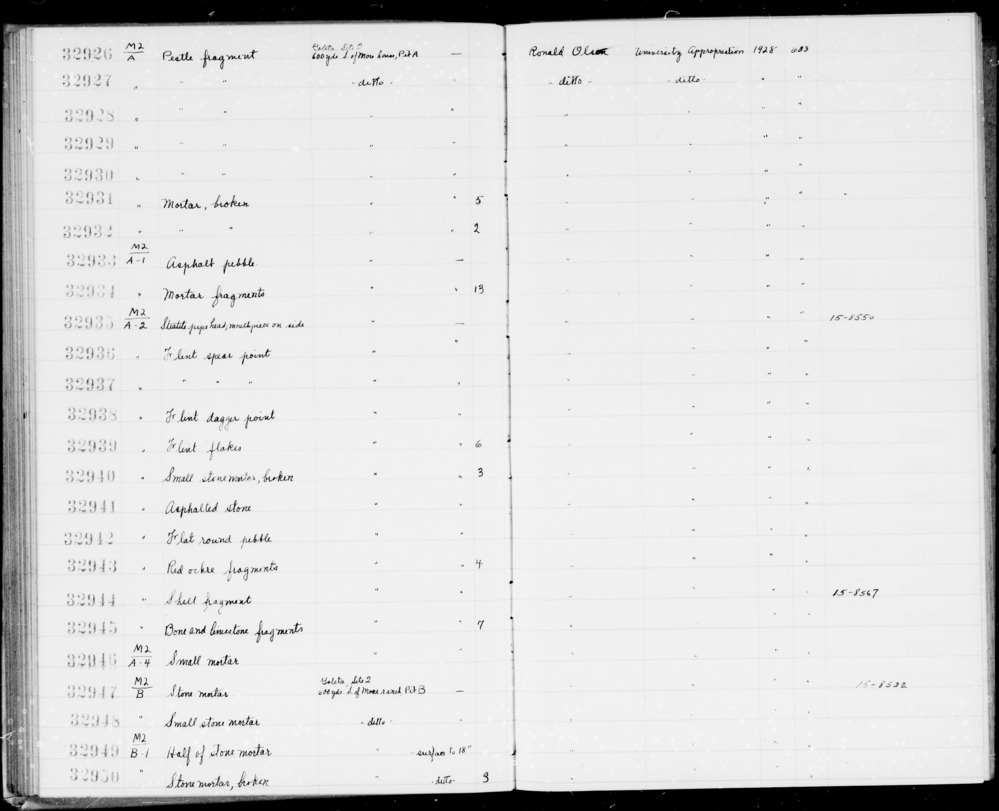 32926 M2/A Pestle fragment Goleta, Site 2 600 yds. S. of More house, Pit A — Ronald Olson University Appropriation 1928 633
32927 " " " - ditto - - ditto - - ditto - " "
32928 " " " " " " " " "
32929 " " " " " " " " "
32930 " " " " " " " " "
32931 " Mortar, broken " " 5 " " " "
32932 " " " " " 2 " " " "
32933 M2/A-1 Asphalt pebble " — " " " "
32934 " Mortar fragments " " 13 " " " "
32935 M2/A-2 Steatite pipe head, mouthpiece on side " — " " " " 15-8550
32936 " Flint spear point " " " " " "
32937 " " " " " " " " " "
32938 " Flint dagger point " " " " " "
32939 " Flint flakes " " 6 " " " "
32940 " Small stone mortar, broken " " 3 " " " "
32941 " Asphalted stone " " " " " "
32942 " Flat round pebble " " " " " "
32943 " Red ochre fragments " " 4 " " " "
32944 " Shell fragment " " " " " " 15-8567
32945 " Bone and limestone fragments " " 7 " " " "
32946 M2/A-4 Small mortar " " " " " "
32947 M2/B Stone mortar Goleta, Site 2 600 yds. S. of More ranch Pit B — " " " " 15-8522
32948 " Small stone mortar - ditto - " " " " "
32949 M2/B-1 Half of stone mortar " surface to 18" " " " "
32950 " Stone mortar, broken " - ditto - 3 " " " "